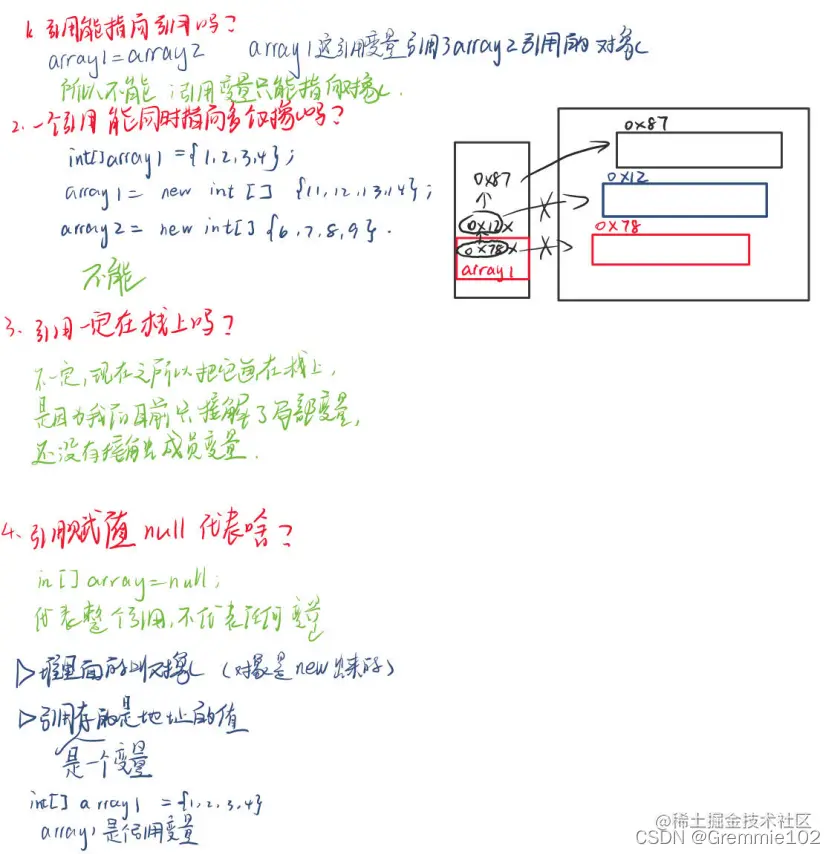 1. 引用能指向引用吗?
array1=array2 array1这引用变量引用了array2引用的对象
所以不能;引用变量只能指向对象.
2.一个引用能同时指向多个对象吗?
int[]array1={1,2,3,4};
array1= new int[] {11,12,13,14};
array2= new int[]{6,7,8,9}.
不能
0x87
0x12
0x78
0x87
0x12x
0x78x
array1
3.引用一定在栈上吗?
不一定,现在之所以把它画在栈上,
是因为我们目前只接解了局部变量,
还没有接触出成员变量.
4.引用赋值null代表啥?
in[]array=null;
代表整个引用,不代表任何变量
▷堆里面的叫对象(对象是new出来的)
▷引用存的是地址的值
是一个变量
int[] array1 ={1,2,3,4}
array1是引用变量
@稀土掘金技术社区
CSDN @Gremmie102